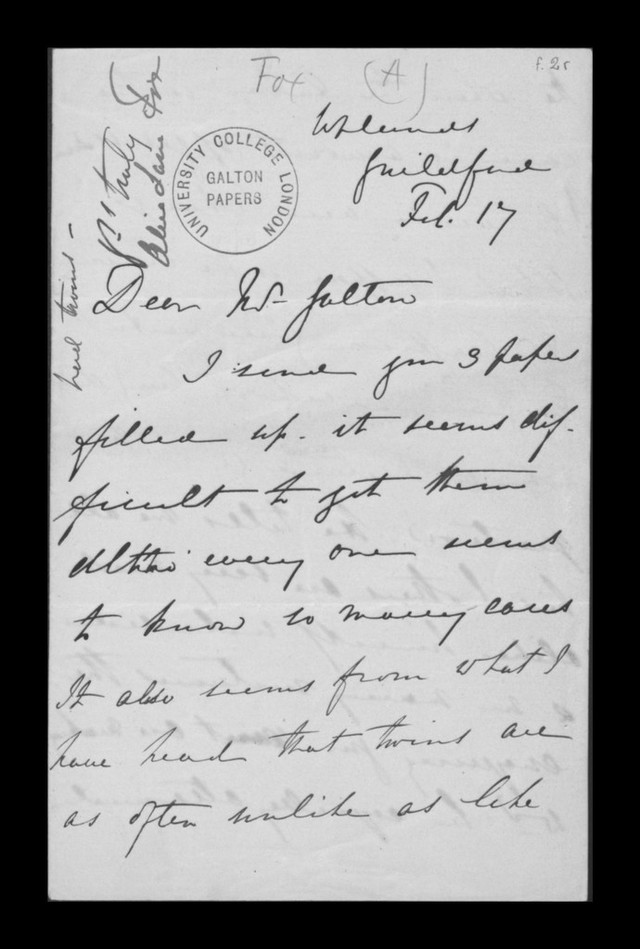 Fox (A)
f. 2r
UNIVERSITY COLLEGE LONDON
GALTON
PAPERS
Uplands
Guildford
Feb. 17
Dear Mr Galton
I send you 3 papers
filled up. it seems dif-
ficult to get them
altho' every one seems
to know so many cases
It also seems from what I
have heard that twins are
as often unlike as like
had twins -
yrs truly
Fox